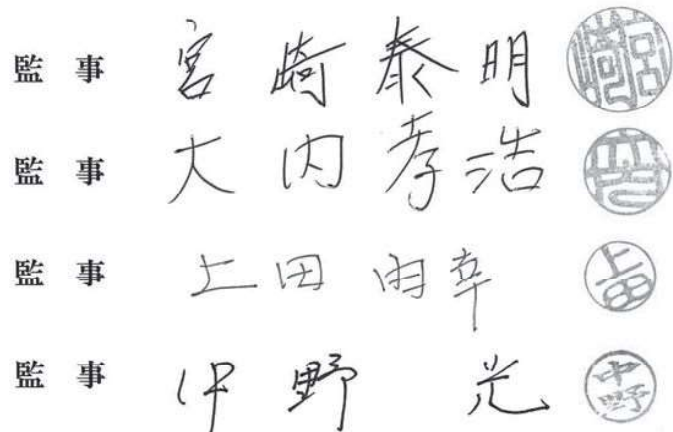 監事 宮﨑泰明 宮﨑
監事 大内孝浩 大内
監事 上田 上田
監事 中野 光 中野